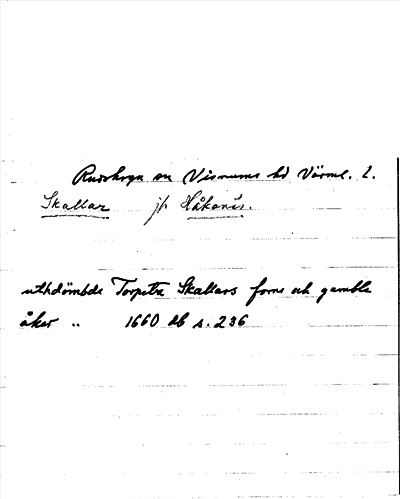 Rudskoga sn Visnums hd Värml. l.
Skallar jfr Håkanäs.
uthdömbde Torpetz Skallars forne och gamble
åker „ 1660 db s. 236